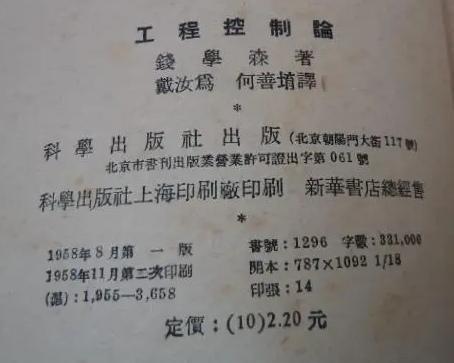 工程控制論
錢學森著
戴汝爲 何善堉譯
*
科學出版社出版 (北京朝陽門大街117號)
北京市書刊出版業營業許可證出字第061號
科學出版社上海印刷廠印刷 新華書店總經售
*
1958年8月第一版 書號:1296 字數:331,000
1958年11月第二次印刷 開本:787×1092 1/18
(滬):1,955—3,658 印張:14
定價:(10)2.20元